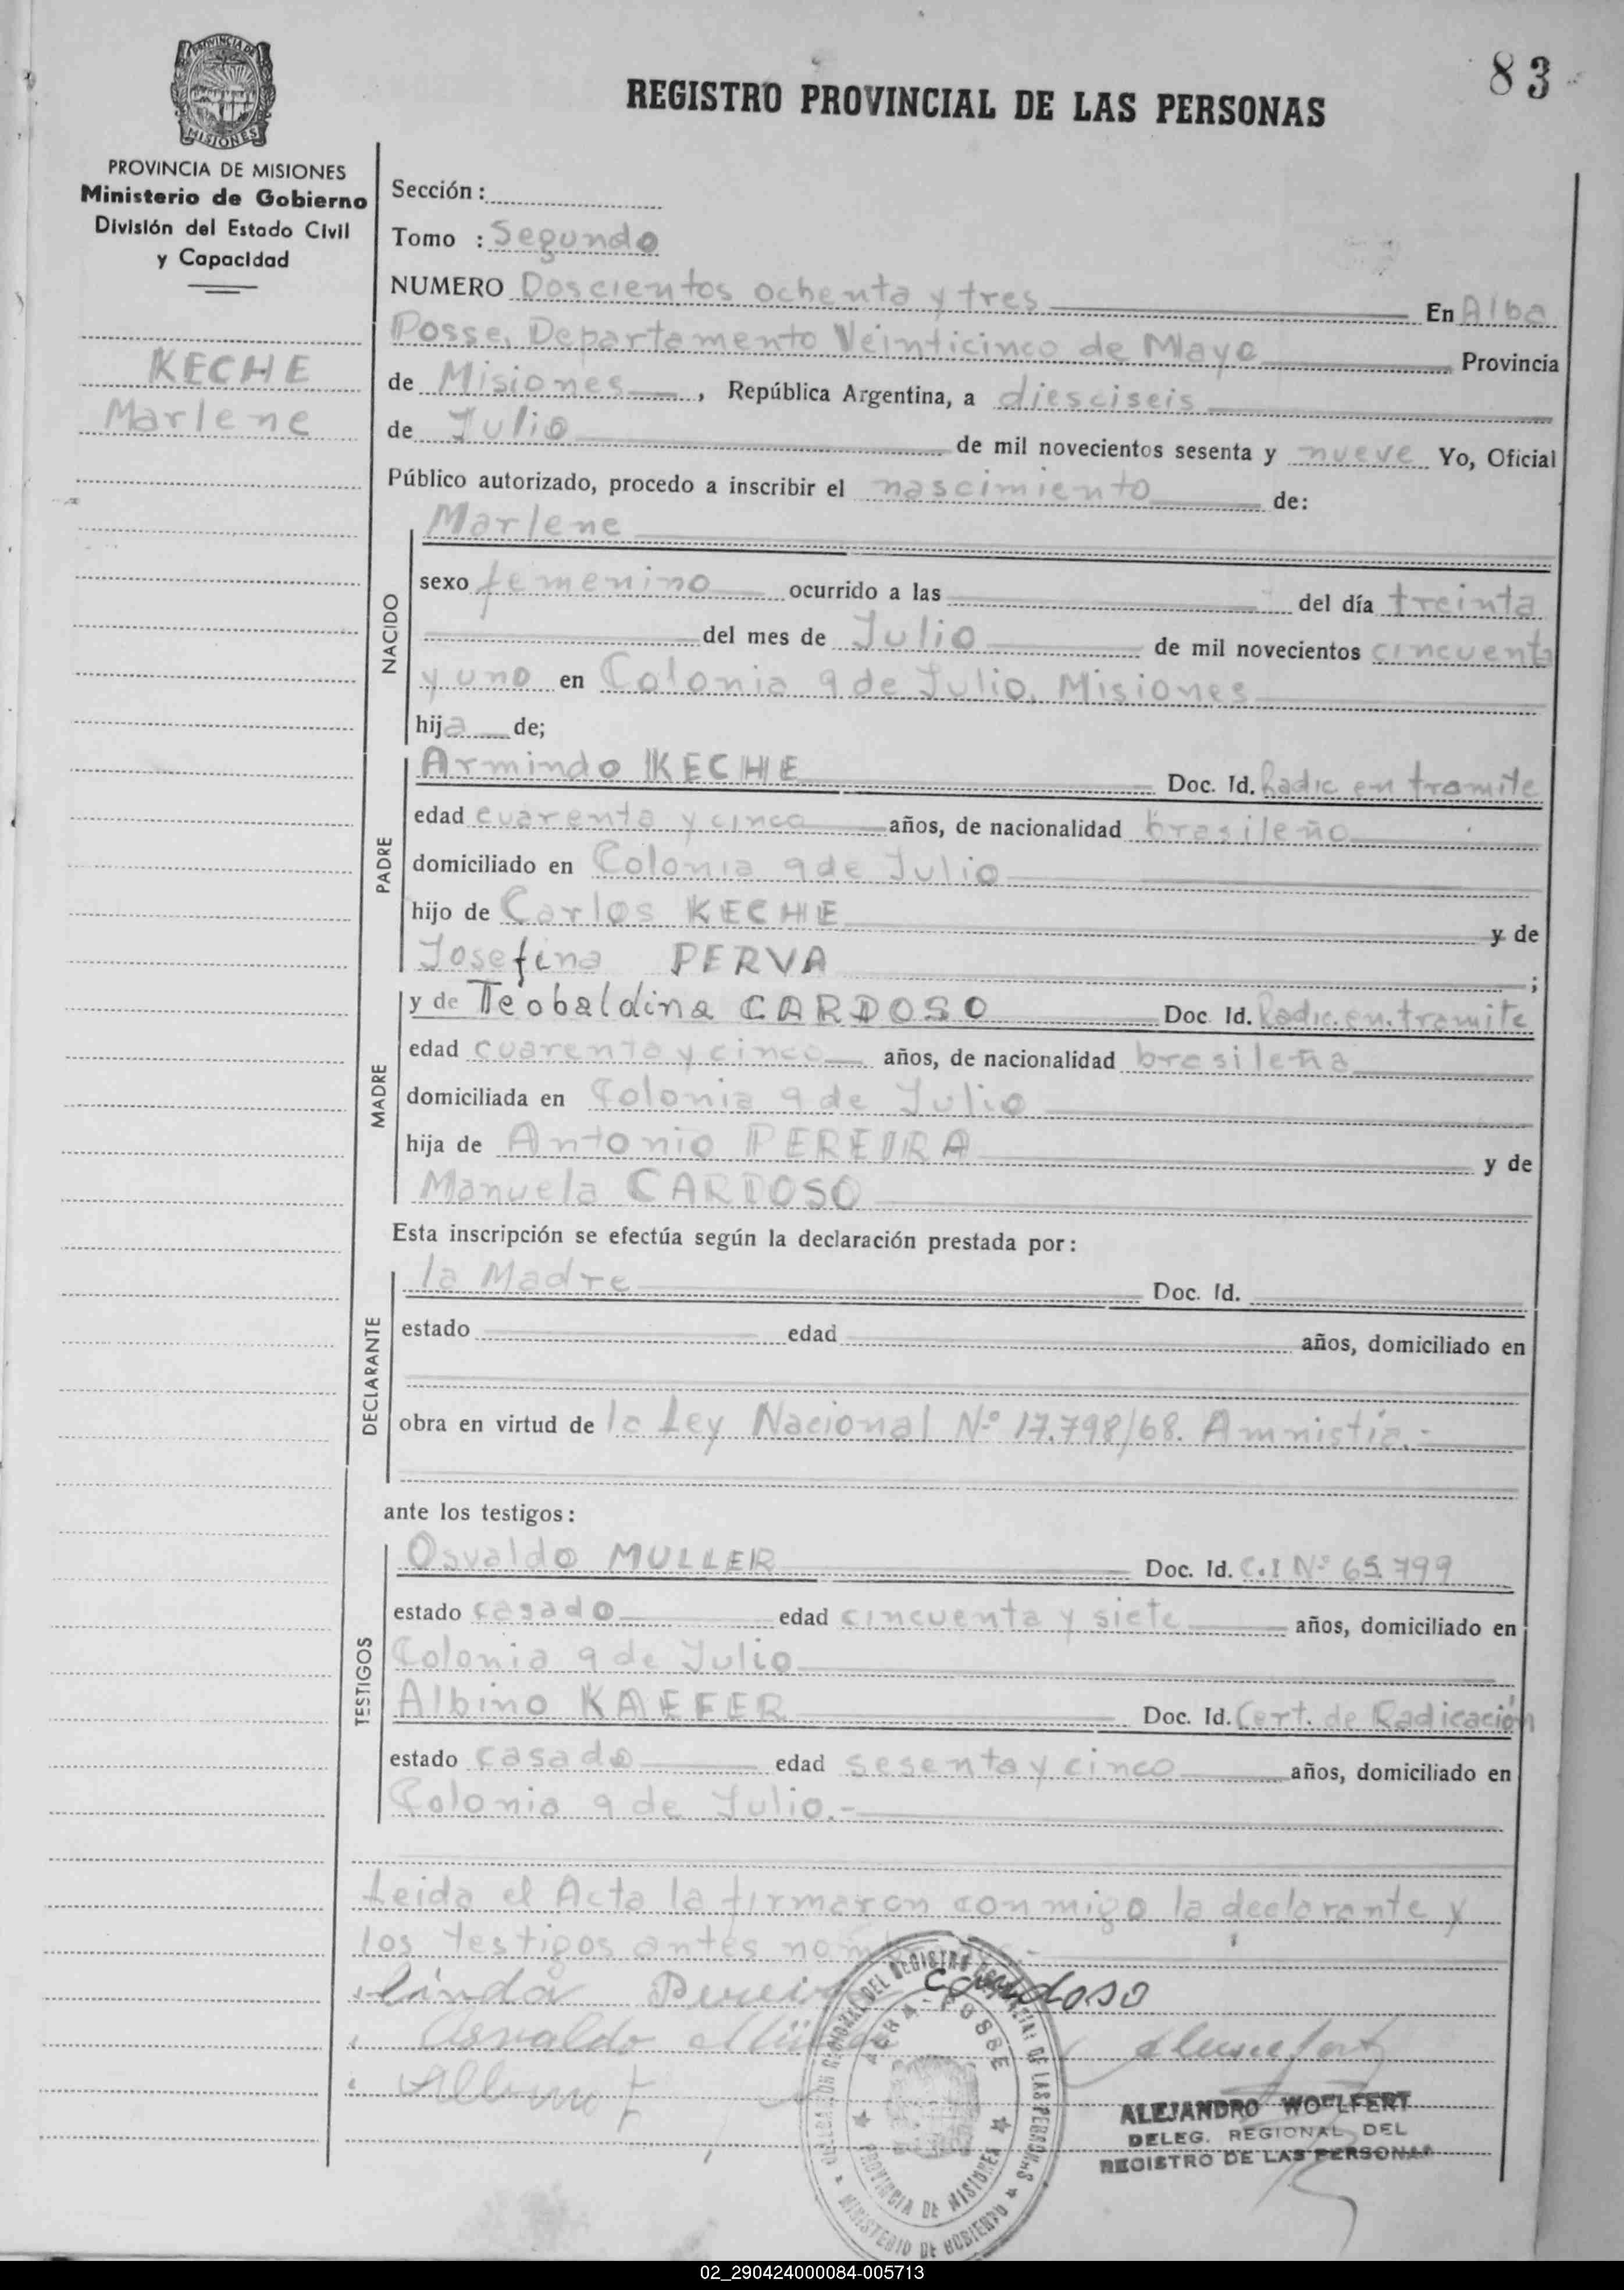 83
PROVINCIA DE
MISIONES
REGISTRO PROVINCIAL DE LAS PERSONAS
PROVINCIA DE MISIONES
Ministerio de Gobierno
División del Estado Civil
y Capacidad
KECHE
Marlene
Sección :
Tomo : Segundo
NUMERO Doscientos ochenta y tres En Alba
Posse, Departamento Veinticinco de Mayo Provincia
de Misiones , República Argentina, a diesciseis
de Julio de mil novecientos sesenta y nueve Yo, Oficial
Público autorizado, procedo a inscribir el nascimiento de:
NACIDO
Marlene
sexo femenino ocurrido a las del día treinta
del mes de Julio de mil novecientos cincuenta
y uno en Colonia 9 de Julio, Misiones
hija de;
PADRE
Armindo KECHE Doc. Id. Radic en tramite
edad cuarenta y cinco años, de nacionalidad brasileño
domiciliado en Colonia 9 de Julio
hijo de Carlos KECHE y de
Josefina PERVA ;
MADRE
y de Teobaldina CARDOSO Doc Id. Radic. en. tramite
edad cuarenta y cinco años, de nacionalidad brasileña
domiciliada en Colonia 9 de Julio
hija de Antonio PEREIRA y de
Manuela CARDOSO
Esta inscripción se efectúa según la declaración prestada por:
DECLARANTE
la Madre Doc. Id.
estado edad años, domiciliado en
obra en virtud de la Ley Nacional Nº 17.798/68. Amnistia.-
ante los testigos:
TESTIGOS
Osvaldo MULLER Doc. Id. C.I Nº 65.799
estado casado edad cincuenta y siete años, domiciliado en
Colonia 9 de Julio
Albino KAEFER Doc. Id. Cert. de Radicación
estado casado edad sesenta y cinco años, domiciliado en
Colonia 9 de Julio.-
Leida el Acta la firmaron conmigo la declarante y
los testigos antes
linda Pereira cardoso
Osvaldo Müller
Albino
DELEGACION REGIONAL DEL REGISTRO PROVINCIAL DE LAS PERSONAS
ALBA - POSSE
PROVINCIA DE MISIONES
MINISTERIO DE GOBIERNO
ALEJANDRO WOELFERT
DELEG. REGIONAL DEL
REGISTRO DE LAS PERSONAS
02_290424000084-005713